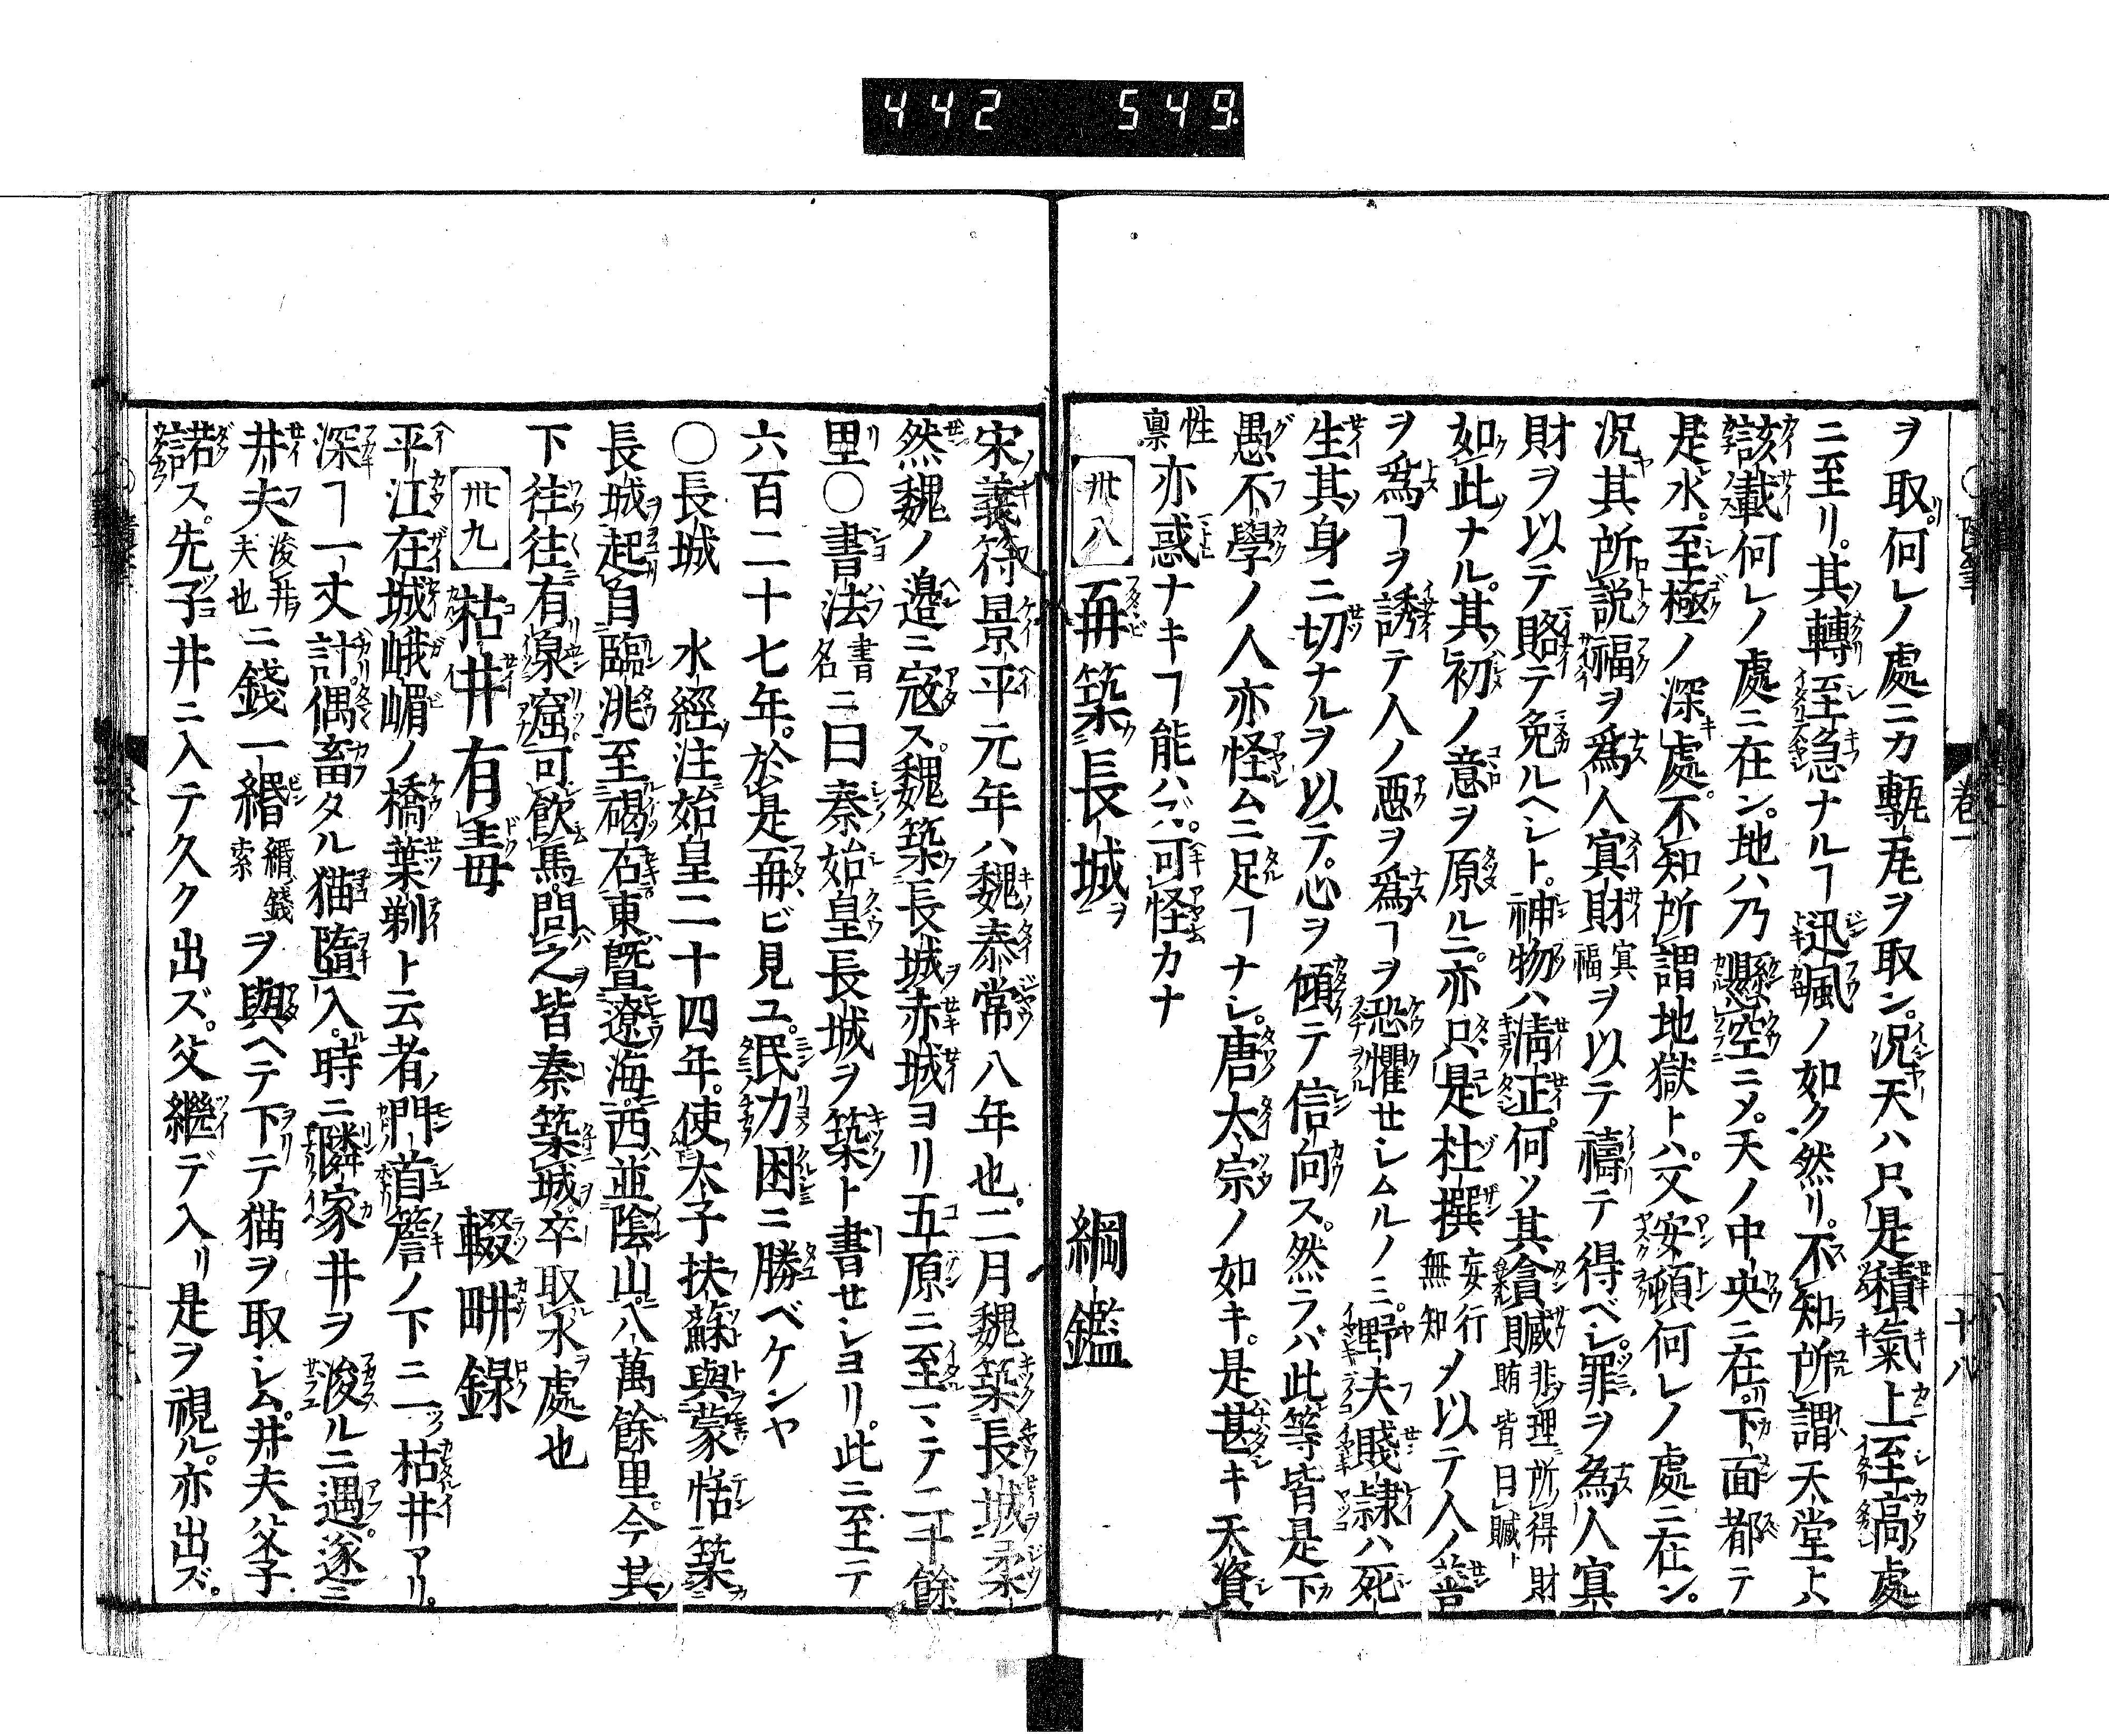 442 549
卷一
十八
ヲ取何レノ處ニカ甎瓦ヲ取ン。況天ハ只是積氣上至高處
ニ至リ。其轉至急ナルヿ迅颷ノ如ク然リ。不知所謂天堂トハ
該載何レノ處ニ在ン。地ハ乃懸空ニメ。天ノ中央ニ在リ。下面都テ
是水。至極ノ深處。不知所謂地獄トハ。又安頓何レノ處ニ在ン。
況其所説福ヲ爲人冥財冥福ヲ以テ禱テ得ベシ。罪ヲ為人冥
財ヲ以テ賂テ免ルヘシト。神物ハ清正。何ソ其貪贓非理所得財賄皆曰贓ト
如此ナル。其初ノ意ヲ原ルニ。亦只是杜撰妄行無知メ以テ人ノ善
ヲ爲ヿヲ誘テ人ノ悪ヲ爲ヿヲ恐懼セシムルノミ。野夫賤隷ハ死
生其身ニ切ナルヲ以テ。心ヲ傾テ信向ス。然ラバ此等皆是下
愚不學ノ人亦怪ムニ足ヿナシ。唐太宗ノ如キ。是甚キ天資
性稟亦惑ナキヿ能ハズ。可怪カナ
卅八 再築長城ヲ 綱鑑
宋義符景平元年ハ魏泰常八年也。二月魏築長城柔
然魏ノ邉ニ寇ス。魏築長城赤城ヨリ五原ニ至ニテ二千餘
里〇書法書名ニ曰秦始皇長城ヲ築ト書セシヨリ。此ニ至テ
六百二十七年。於是再ビ見ユ。民力困ニ勝ベケンヤ
〇長城 水經注始皇二十四年。使太子扶蘇與蒙恬築
長城起自臨洮至碣石東曁遼海西並陰山。八萬餘里今其
下往往有泉窟可飲馬。問之皆秦築城卒取水處也
卅九 枯井有毒 輟畊錄
平江在城峨嵋ノ橋葉剃ト云者ノ門首簷ノ下ニ一ツ枯井アリ。
深ヿ一丈計。偶畜タル猫墮入。時ニ隣家井ヲ浚ルニ遇。遂ニ
井夫浚井夫也ニ錢一緡緡錢索ヲ與ヘテ下テ猫ヲ取シム。井夫父子
諾ス。先子井ニ入テ久ク出ズ。父繼デ入リ是ヲ視ル。亦出ズ。